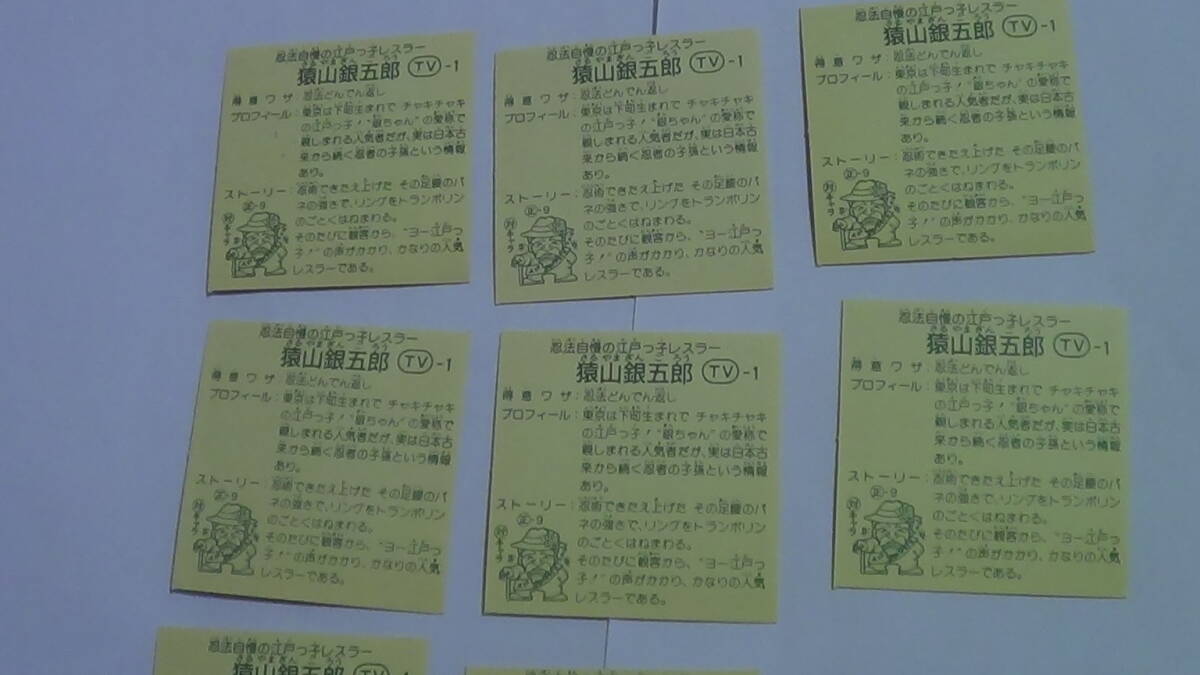 忍法自慢の江戸っ子レスラー
さるやまぎんごろう
猿山銀五郎 TV-1
得意ワザ：忍法どんでん返し
プロフィール：東京は下町生まれで チャキチャキ
の江戸っ子！“銀ちゃん”の愛称で
親しまれる人気者だが、実は日本古
来から続く忍者の子孫という情報
あり。
ストーリー：忍術できたえ上げた その足腰のバ
ネの強さで、リングをトランポリン
のごとくはねまわる。
そのたびに観客から、“ヨー江戸っ
子！”の声がかかり、かなりの人気
レスラーである。
正-9
対キャラ
忍法自慢の江戸っ子レスラー
さるやまぎんごろう
猿山銀五郎 TV-1
得意ワザ：忍法どんでん返し
プロフィール：東京は下町生まれで チャキチャキ
の江戸っ子！“銀ちゃん”の愛称で
親しまれる人気者だが、実は日本古
来から続く忍者の子孫という情報
あり。
ストーリー：忍術できたえ上げた その足腰のバ
ネの強さで、リングをトランポリン
のごとくはねまわる。
そのたびに観客から、“ヨー江戸っ
子！”の声がかかり、かなりの人気
レスラーである。
正-9
対キャラ
忍法自慢の江戸っ子レスラー
さるやまぎんごろう
猿山銀五郎 TV-1
得意ワザ：忍法どんでん返し
プロフィール：東京は下町生まれで チャキチャキ
の江戸っ子！“銀ちゃん”の愛称で
親しまれる人気者だが、実は日本古
来から続く忍者の子孫という情報
あり。
ストーリー：忍術できたえ上げた その足腰のバ
ネの強さで、リングをトランポリン
のごとくはねまわる。
そのたびに観客から、“ヨー江戸っ
子！”の声がかかり、かなりの人気
レスラーである。
正-9
対キャラ
忍法自慢の江戸っ子レスラー
さるやまぎんごろう
猿山銀五郎 TV-1
得意ワザ：忍法どんでん返し
プロフィール：東京は下町生まれで チャキチャキ
の江戸っ子！“銀ちゃん”の愛称で
親しまれる人気者だが、実は日本古
来から続く忍者の子孫という情報
あり。
ストーリー：忍術できたえ上げた その足腰のバ
ネの強さで、リングをトランポリン
のごとくはねまわる。
そのたびに観客から、“ヨー江戸っ
子！”の声がかかり、かなりの人気
レスラーである。
正-9
対キャラ
忍法自慢の江戸っ子レスラー
さるやまぎんごろう
猿山銀五郎 TV-1
得意ワザ：忍法どんでん返し
プロフィール：東京は下町生まれで チャキチャキ
の江戸っ子！“銀ちゃん”の愛称で
親しまれる人気者だが、実は日本古
来から続く忍者の子孫という情報
あり。
ストーリー：忍術できたえ上げた その足腰のバ
ネの強さで、リングをトランポリン
のごとくはねまわる。
そのたびに観客から、“ヨー江戸っ
子！”の声がかかり、かなりの人気
レスラーである。
正-9
対キャラ
忍法自慢の江戸っ子レスラー
さるやまぎんごろう
猿山銀五郎 TV-1
得意ワザ：忍法どんでん返し
プロフィール：東京は下町生まれで チャキチャキ
の江戸っ子！“銀ちゃん”の愛称で
親しまれる人気者だが、実は日本古
来から続く忍者の子孫という情報
あり。
ストーリー：忍術できたえ上げた その足腰のバ
ネの強さで、リングをトランポリン
のごとくはねまわる。
そのたびに観客から、“ヨー江戸っ
子！”の声がかかり、かなりの人気
レスラーである。
正-9
対キャラ
忍法自慢の江戸っ子レスラー
さるやまぎんごろう
猿山銀五郎 TV-1